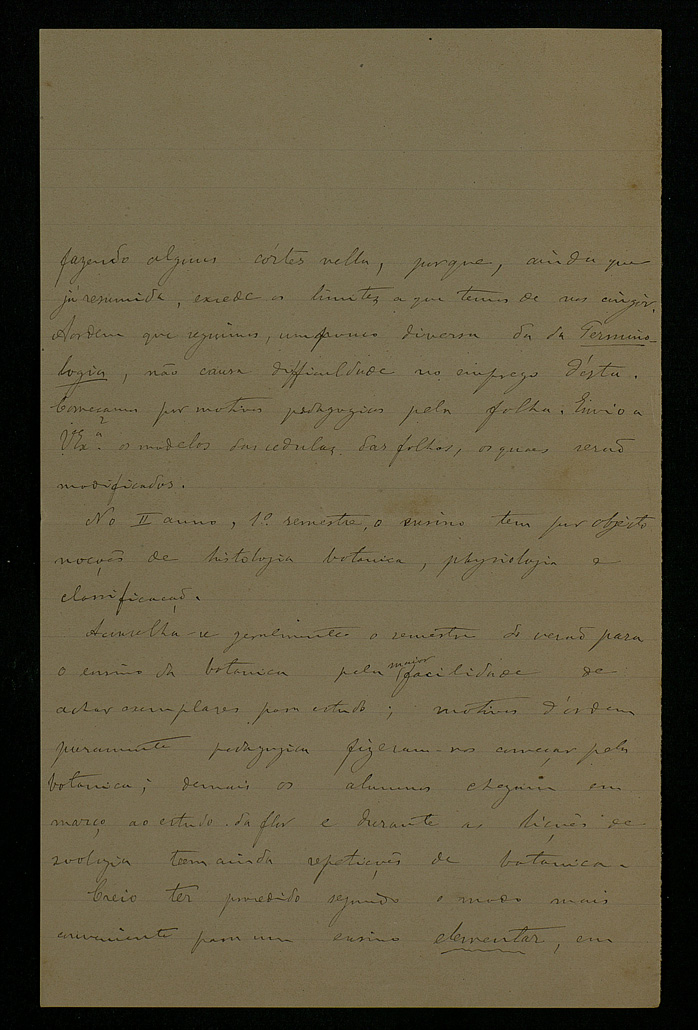 fazendo alguns córtes nella, porque, ainda que
já resumida, excede os limites a que temos de nos cingir.
A ordem que seguimos, um pouco diversa da da Termino-
logia, não causa difficuldade no emprego d'ésta.
Começamos por motivos pedagogicos pela folha. Envio a
V. Ex.ª os modelos das cedulas das folhas, os quaes serão
modificados.
No II anno, 1º semestre, o ensino tem por objecto
noções de histologia botanica, physiologia e
classificação.
Aconselha-se geralmente o semestre de verão para
o ensino da botanica pela maior facilidade de
achar exemplares para estudo; motivos d'ordem
puramente pedagogica fizeram-nos começar pela
botanica; demais os alumnos chegam em
março ao estudo da flor e durante as lições de
zoologia teem ainda repetições de botanica.
Creio ter procedido segundo o modo mais
conveniente para um ensino elementar, em